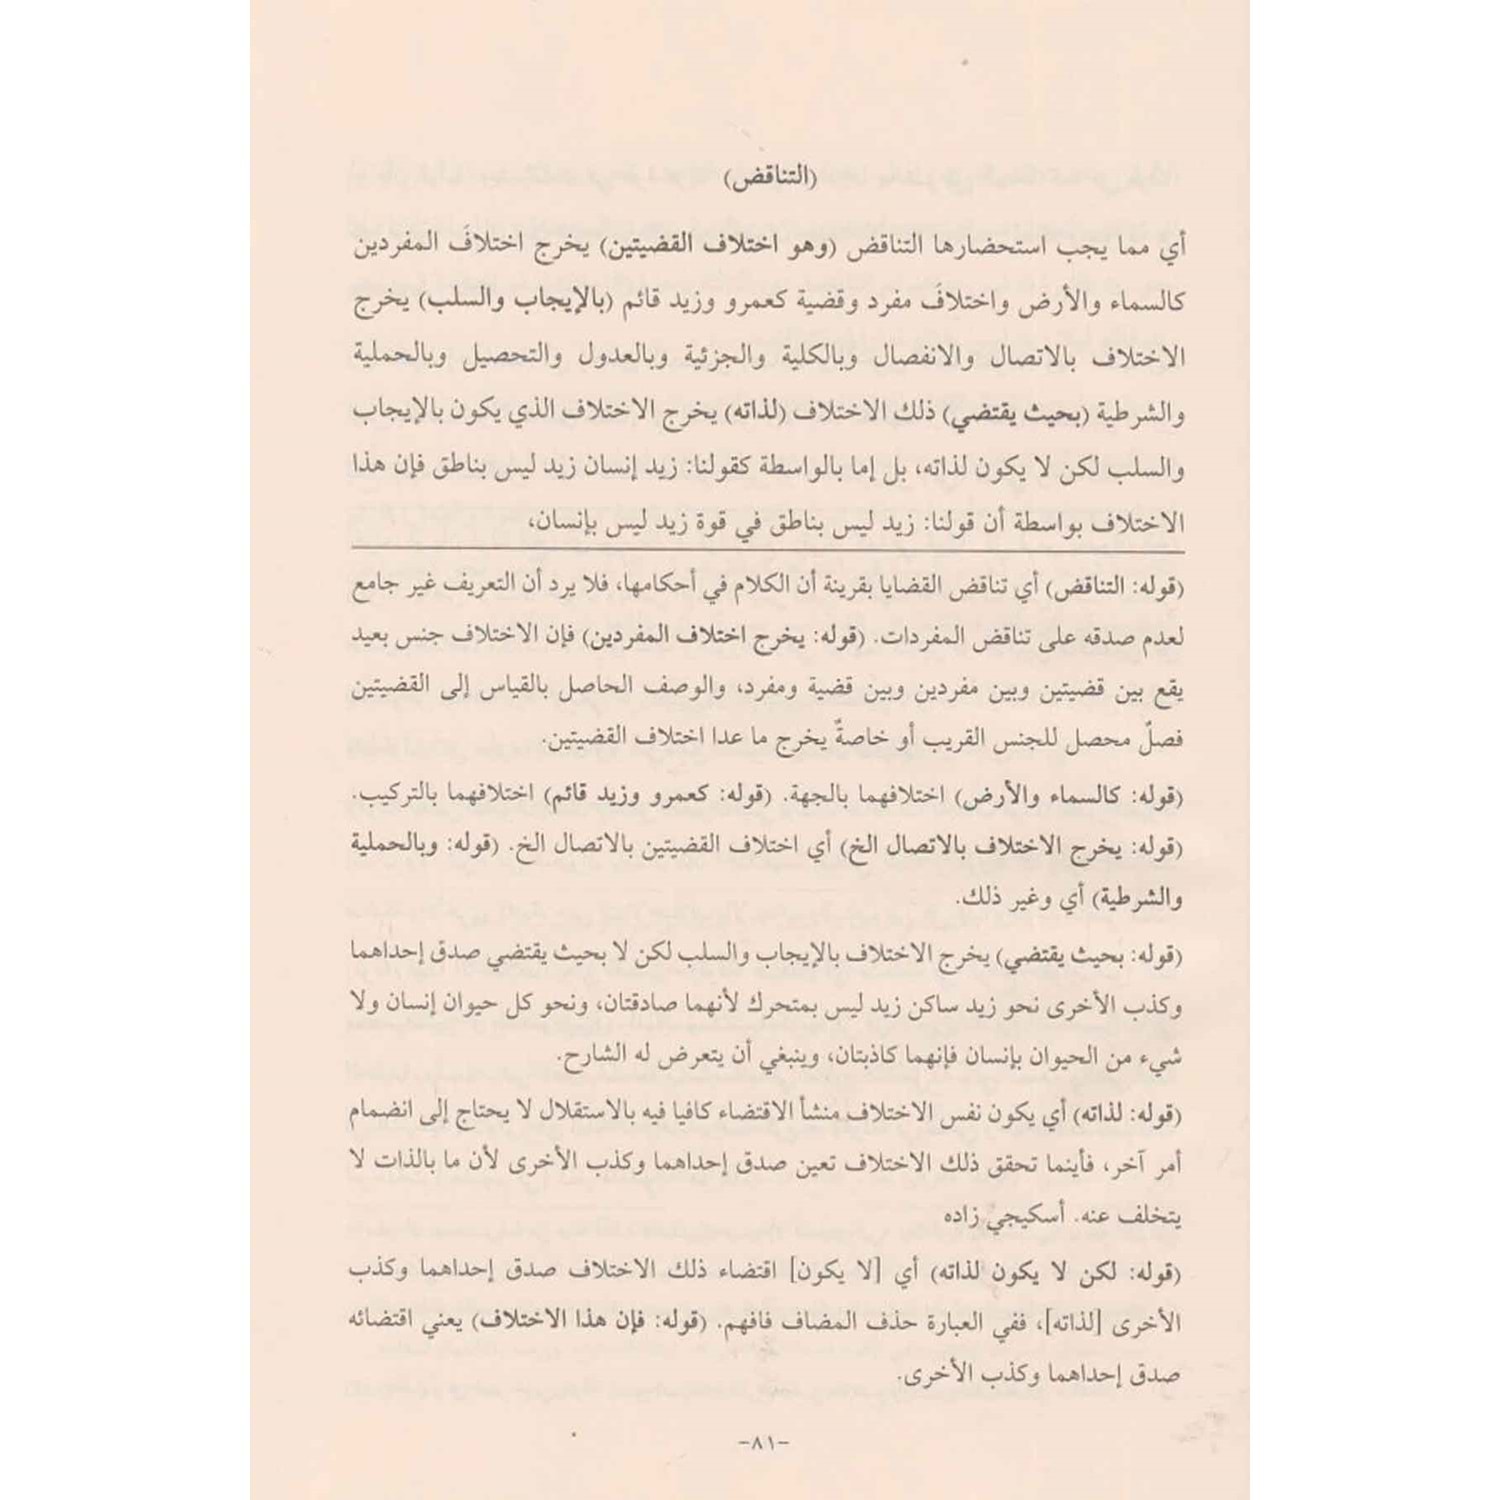 (التناقض)
أي مما يجب استحضارها التناقض (وهو اختلاف القضيتين) يخرج اختلافَ المفردين
كالسماء والأرض واختلافَ مفرد وقضية كعمرو وزيد قائم (بالإيجاب والسلب) يخرج
الاختلاف بالاتصال والانفصال وبالكلية والجزئية وبالعدول والتحصيل وبالحملية
والشرطية (بحيث يقتضي) ذلك الاختلاف (لذاته) يخرج الاختلاف الذي يكون بالإيجاب
والسلب لكن لا يكون لذاته، بل إما بالواسطة كقولنا: زيد إنسان زيد ليس بناطق فإن هذا
الاختلاف بواسطة أن قولنا: زيد ليس بناطق في قوة زيد ليس بإنسان،
(قوله: التناقض) أي تناقض القضايا بقرينة أن الكلام في أحكامها، فلا يرد أن التعريف غير جامع
لعدم صدقه على تناقض المفردات. (قوله: يخرج اختلاف المفردين) فإن الاختلاف جنس بعيد
يقع بين قضيتين وبين مفردين وبين قضية ومفرد، والوصف الحاصل بالقياس إلى القضيتين
فصلٌ محصل للجنس القريب أو خاصةٌ يخرج ما عدا اختلاف القضيتين.
(قوله: كالسماء والأرض) اختلافهما بالجهة. (قوله: كعمرو وزيد قائم) اختلافهما بالتركيب.
(قوله: يخرج الاختلاف بالاتصال الخ) أي اختلاف القضيتين بالاتصال الخ. (قوله: وبالحملية
والشرطية) أي وغير ذلك.
(قوله: بحيث يقتضي) يخرج الاختلاف بالإيجاب والسلب لكن لا بحيث يقتضي صدق إحداهما
وكذب الأخرى نحو زيد ساكن زيد ليس بمتحرك لأنهما صادقتان، ونحو كل حيوان إنسان ولا
شيء من الحيوان بإنسان فإنهما كاذبتان، وينبغي أن يتعرض له الشارح.
(قوله: لذاته) أي يكون نفس الاختلاف منشأ الاقتضاء كافيا فيه بالاستقلال لا يحتاج إلى انضمام
أمر آخر، فأينما تحقق ذلك الاختلاف تعين صدق إحداهما وكذب الأخرى لأن ما بالذات لا
يتخلف عنه. أسكيجي زاده
(قوله: لكن لا يكون لذاته) أي [لا يكون] اقتضاء ذلك الاختلاف صدق إحداهما وكذب
الأخرى [لذاته]، ففي العبارة حذف المضاف فافهم. (قوله: فإن هذا الاختلاف) يعني اقتضائه
صدق إحداهما وكذب الأخرى.
-٨١-